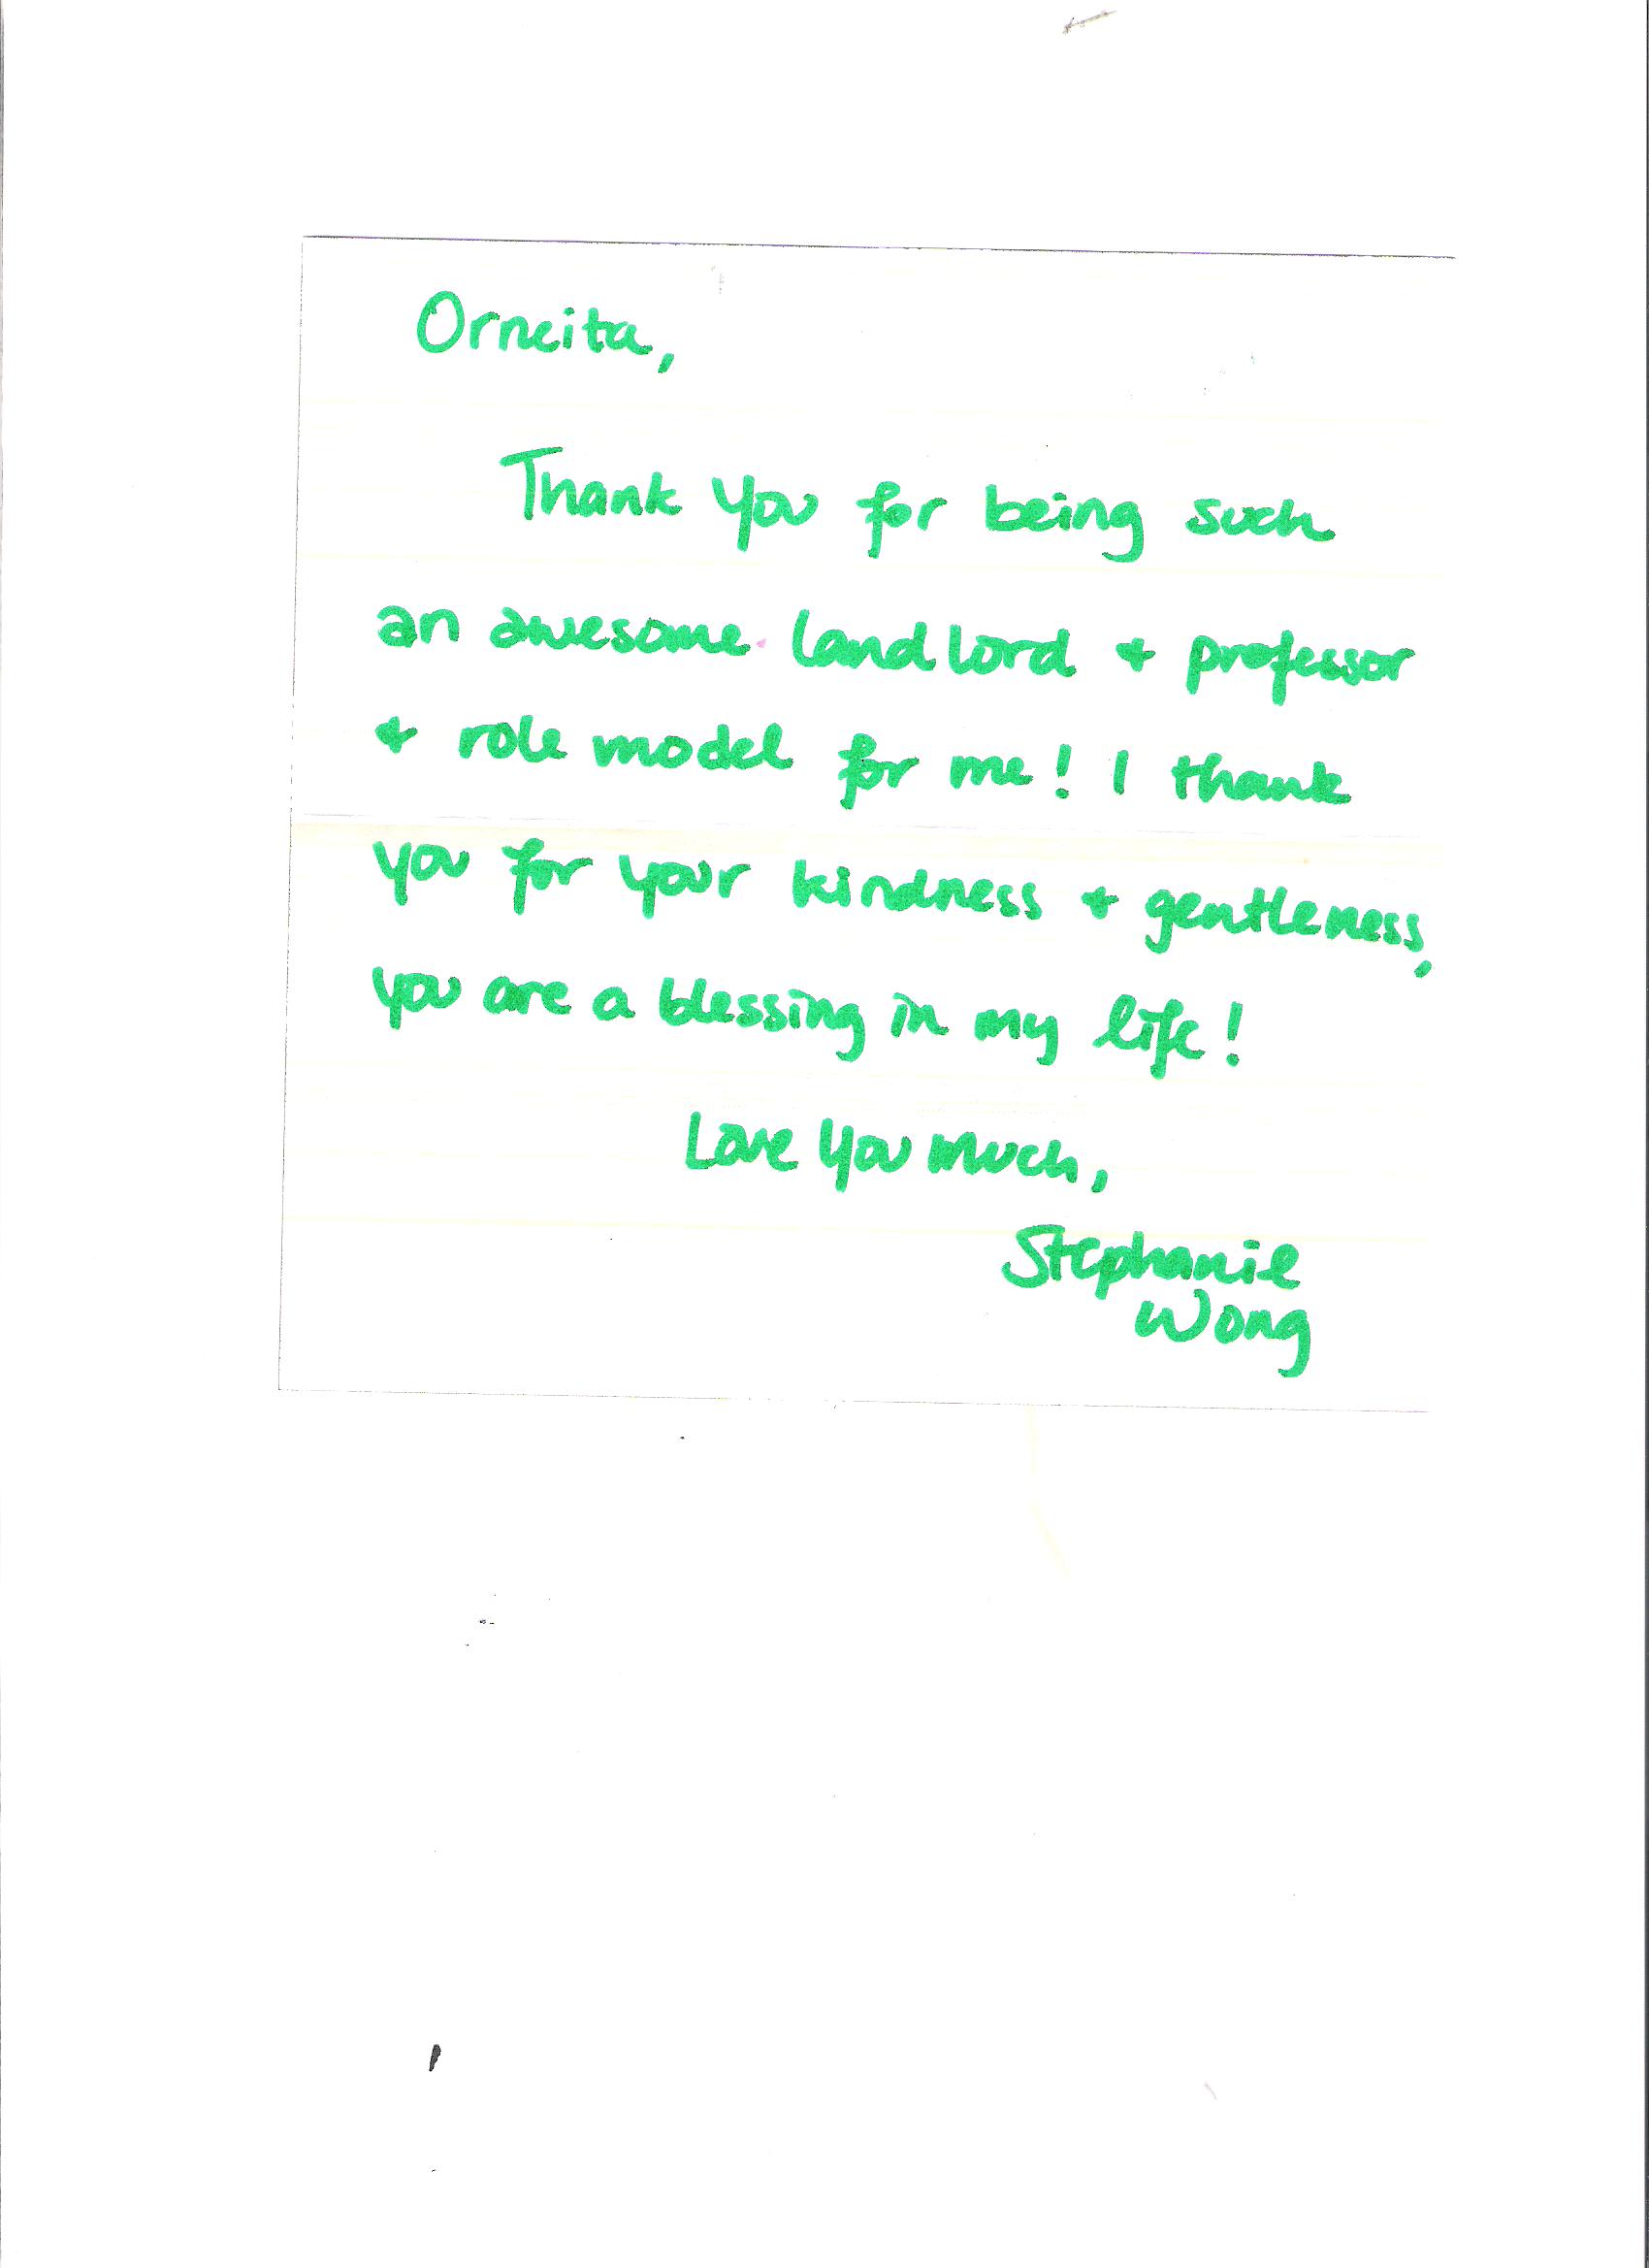 Orneita,
Thank you for being such
an awesome landlord + professor
+ role model for me! I thank
you for your kindness + gentleness,
you are a blessing in my life!
Love you much,
Stephanie
Wong